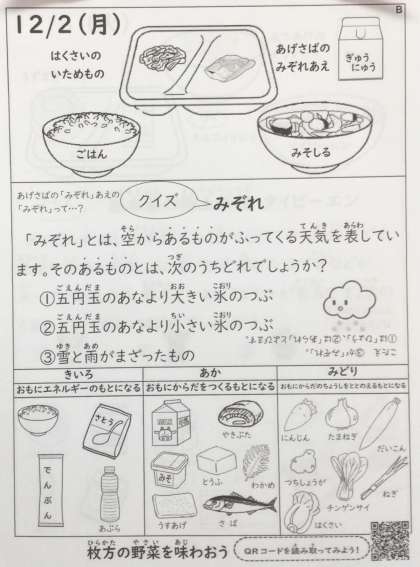 B
12/2(月)
はくさいの
いためもの
あげさばの
みぞれあえ
ぎゅう
にゅう
ごはん
みそしる
あげさばの「みぞれ」あえの
「みぞれ」って…?
クイズ
みぞれ
「みぞれ」とは、空からあるものがふってくる天気を表してい
ます。そのあるものとは、次のうちどれでしょうか?
①五円玉のあなより大きい氷のつぶ
②五円玉のあなより小さい氷のつぶ
③雪と雨がまざったもの
こたえ ③が「みぞれ」。
①は「ひょう」、②は「あられ」とよびます。
きいろ
おもにエネルギーのもとになる
さとう
でんぷん
あぶら
あか
おもにからだをつくるもとになる
やきぶた
みそ
とうふ
わかめ
うすあげ
さば
みどり
おもにからだのちょうしをととのえるもとになる
にんじん
たまねぎ
だいこん
つちしょうが
チンゲンサイ
ねぎ
はくさい
枚方の野菜を味わおう
QRコードを読み取ってみよう!